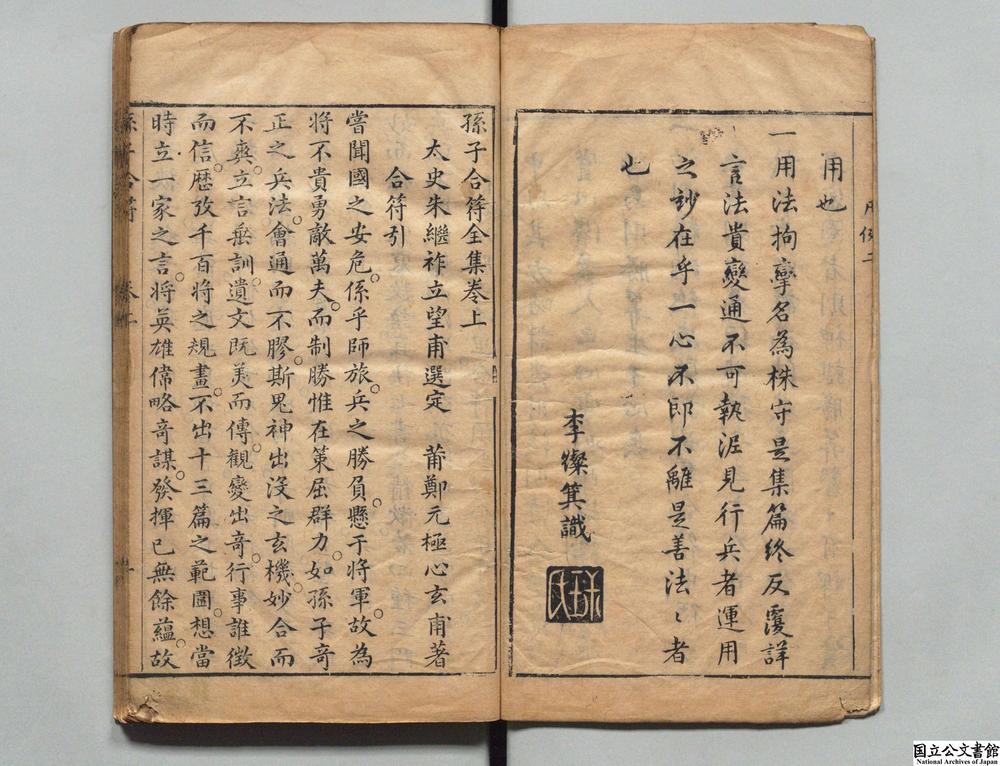 用也
一用法拘攣名為株守是集篇終反覆詳
言法貴變通不可執泥見行兵者運用
之玅在乎一心不即不離是善法〻者
也
李徽箕識
孫子合符全集卷上
太史朱繼祚立望甫選定 莆鄭元極心玄甫著
合符引
嘗聞國之安危係乎師旅兵之勝負懸于將軍故為
將不貴勇敵萬夫而制勝惟在策屈群力如孫子奇
正之兵法會通而不膠斯鬼神出没之玄機妙合而
不爽立言垂訓遺文既美而傳觀變出奇行事誰徵
而信歷攷千百將之規畫不出十三篇之範圍想當
時立一家之言將英雄偉略奇謀發揮已無餘蘊故
孫子合符 卷上
国立公文書館
National Archives of Japan